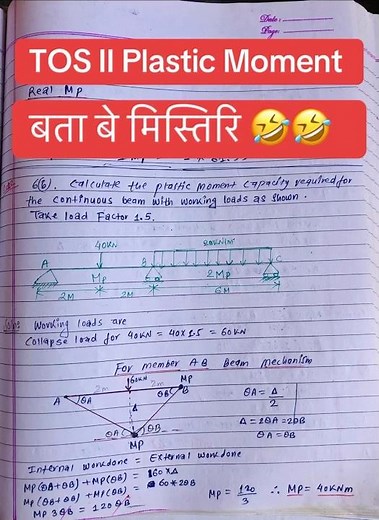 Date:
Page:
TOS II Plastic Moment
Real Mp
बता बे मिस्तिरि 🤣🤣
6(b). Calculate the plastic moment capacity required for
the continuous beam with working loads as shown.
Take load Factor 1.5.
40KN
A
B
C
Mp
2Mp
2M
2M
6M
Working loads are
Collapse load for 40KN = 40×1.5 = 60KN
For member AB Beam mechanism
60KN
MP
2m
2m
A
θA
θB
B
Δ
θA
θB
MP
θA = Δ/2
Δ = 2θA = 2θB
θA = θB
Internal workdone = External workdone
MP(θA+θB)+MP(θB) = 60×Δ
MP(θB+θB)+MP(θB) = 60*2θB
MP 3θB = 120θB
MP = 120/3 ∴ MP = 40KNm